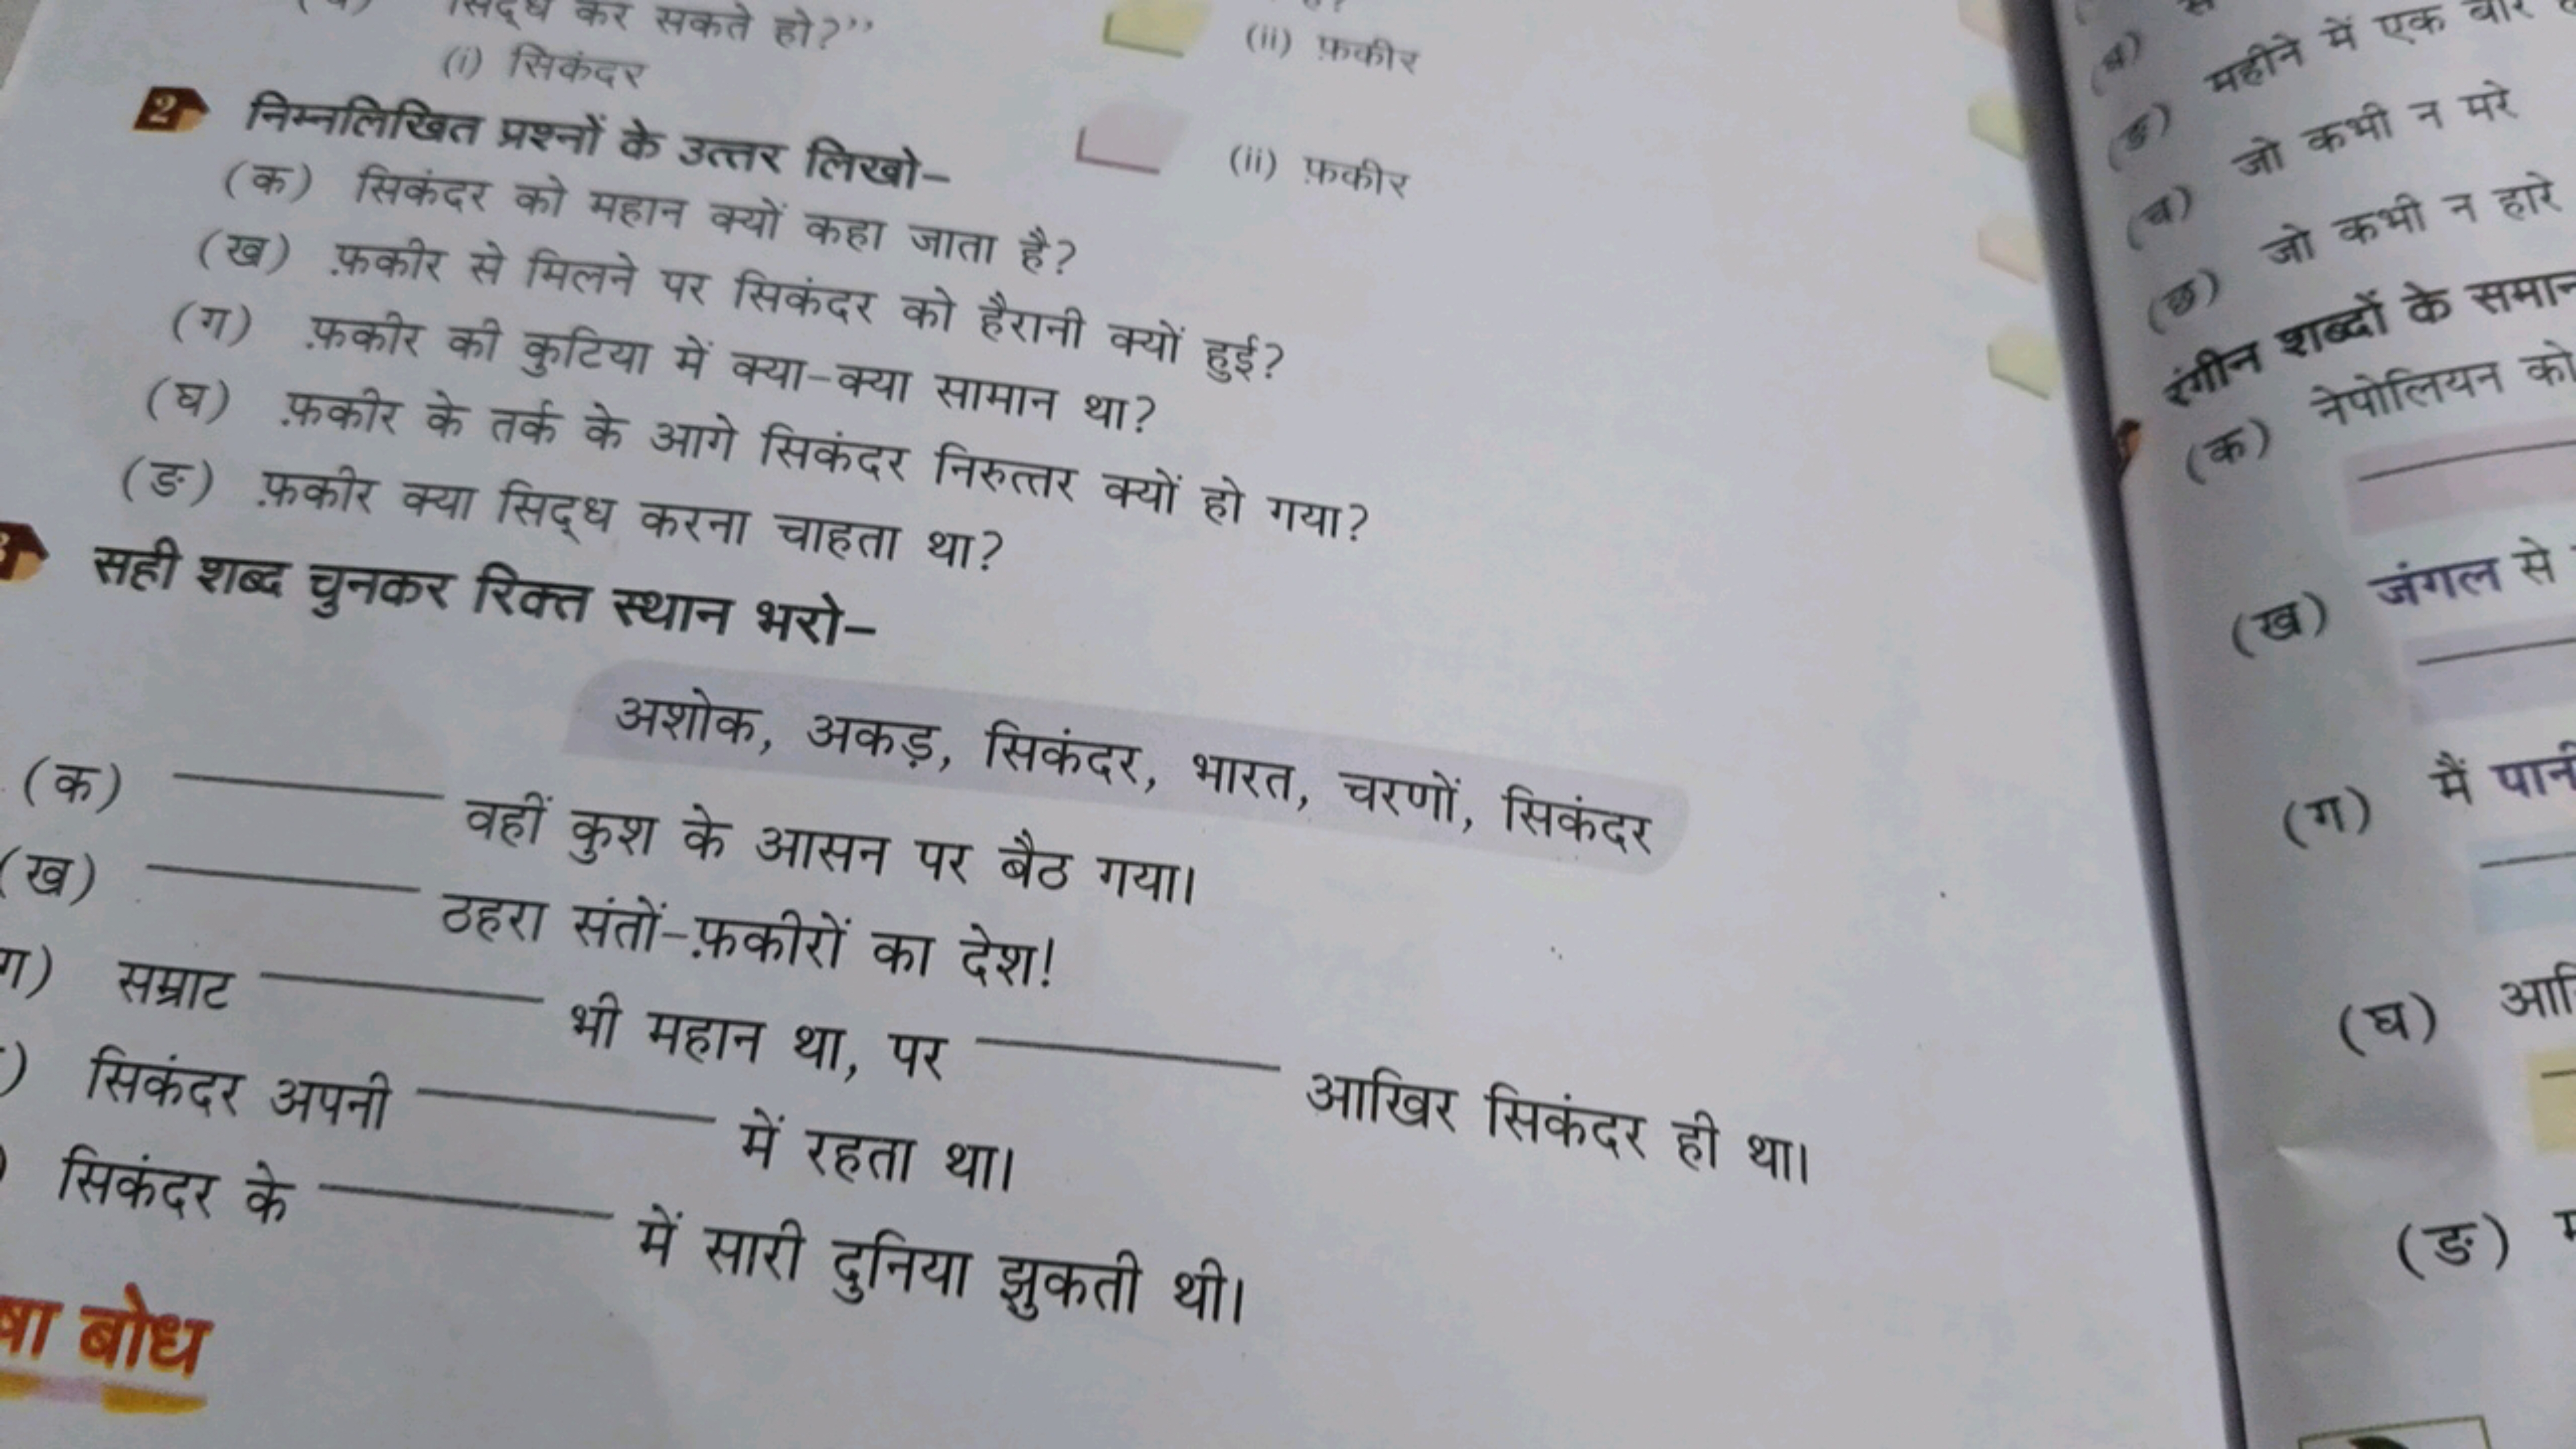 सिद्ध कर सकते हो?"
(i) सिकंदर
(ii) फ़कीर
2 निम्नलिखित प्रश्नों के उत्तर लिखो–
(ii) फ़कीर
(क) सिकंदर को महान क्यों कहा जाता है?
(ख) फ़कीर से मिलने पर सिकंदर को हैरानी क्यों हुई?
(ग) फ़कीर की कुटिया में क्या-क्या सामान था?
(घ) फ़कीर के तर्क के आगे सिकंदर निरुत्तर क्यों हो गया?
(ङ) फ़कीर क्या सिद्ध करना चाहता था?
सही शब्द चुनकर रिक्त स्थान भरो–
अशोक, अकड़, सिकंदर, भारत, चरणों, सिकंदर
(क) ______ वहीं कुश के आसन पर बैठ गया।
(ख) ______ ठहरा संतों-फ़कीरों का देश!
ग) सम्राट ______ भी महान था, पर ______ आखिर सिकंदर ही था।
) सिकंदर अपनी ______ में रहता था।
) सिकंदर के ______ में सारी दुनिया झुकती थी।
षा बोध
(ङ) महीने में एक बार
(च) जो कभी न मरे
(छ) जो कभी न हारे
रंगीन शब्दों के समान
(क) नेपोलियन को
(ख) जंगल से
(ग) मैं पानी
(घ)
(ङ)